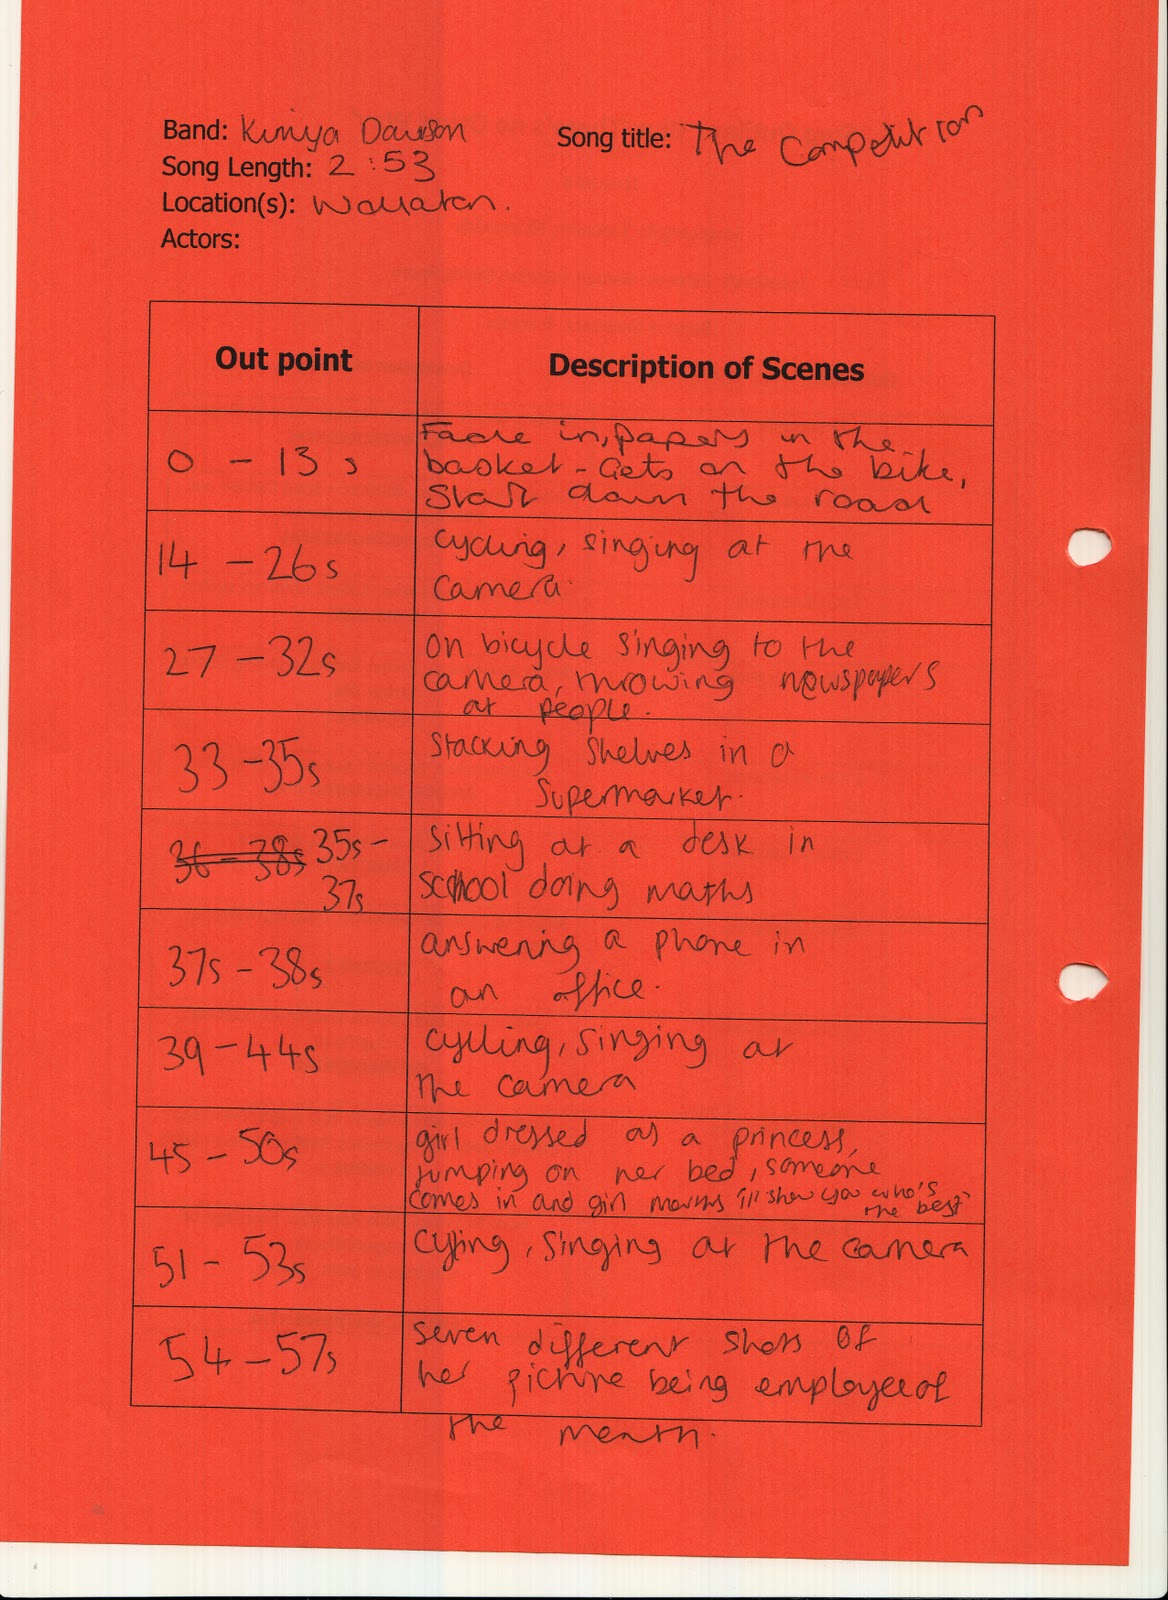 Band: Kimya Dawson Song title: The Competition
Song Length: 2:53
Location(s): Wollaton.
Actors:
Out point Description of Scenes
0 - 13s
Fade in, papers in the
basket - Gets on the bike,
Start down the road
14 - 26s
cycling, singing at the
camera.
27 - 32s
On bicycle singing to the
camera, throwing newspapers
at people.
33 - 35s
stacking shelves in a
supermarket.
36 - 38s 35s -
37s
sitting at a desk in
school doing maths
37s - 38s
answering a phone in
an office.
39 - 44s
cycling, singing at
the camera
45 - 50s
girl dressed as a princess,
jumping on her bed, someone
comes in and girl mouths 'ill show you who's
the best'
51 - 53s
cycling, singing at the camera
54 - 57s
seven different shots of
her picture being employee of
the month.